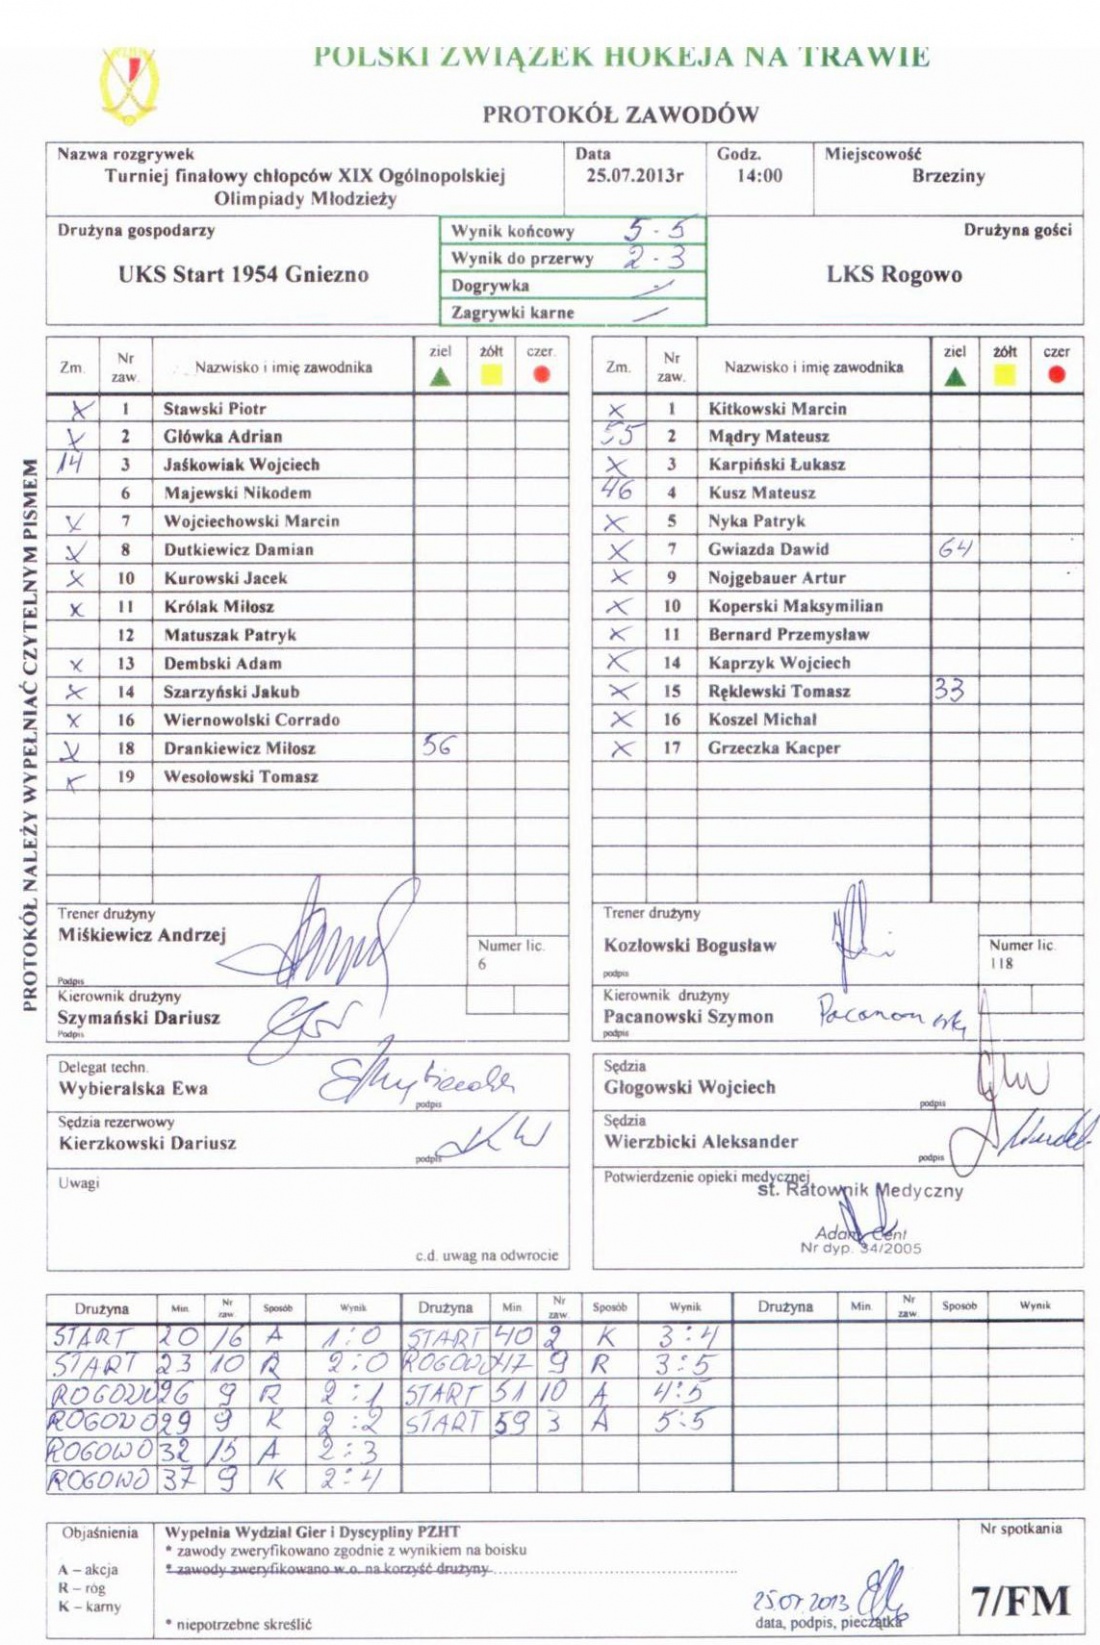 POLSKI ZWIĄZEK HOKEJA NA TRAWIE
PROTOKÓŁ ZAWODÓW
Nazwa rozgrywek
Turniej finałowy chłopców XIX Ogólnopolskiej
Olimpiady Młodzieży
Data
25.07.2013r
Godz.
14:00
Miejscowość
Brzeziny
Drużyna gospodarzy
UKS Start 1954 Gniezno
Wynik końcowy 5 - 5
Wynik do przerwy 2 - 3
Dogrywka —
Zagrywki karne —
Drużyna gości
LKS Rogowo
PROTOKÓŁ NALEŻY WYPEŁNIAĆ CZYTELNYM PISMEM
Zm. Nr zaw. Nazwisko i imię zawodnika ziel żółt czer.
x 1 Stawski Piotr
x 2 Główka Adrian
14 3 Jaśkowiak Wojciech
6 Majewski Nikodem
x 7 Wojciechowski Marcin
x 8 Dutkiewicz Damian
x 10 Kurowski Jacek
x 11 Królak Miłosz
12 Matuszak Patryk
x 13 Dembski Adam
x 14 Szarzyński Jakub
x 16 Wiernowolski Corrado
x 18 Drankiewicz Miłosz 56
x 19 Wesołowski Tomasz
Trener drużyny
Miśkiewicz Andrzej
Podpis
Numer lic.
6
Kierownik drużyny
Szymański Dariusz
Podpis
Zm. Nr zaw. Nazwisko i imię zawodnika ziel żółt czer
x 1 Kitkowski Marcin
55 2 Mądry Mateusz
x 3 Karpiński Łukasz
46 4 Kusz Mateusz
x 5 Nyka Patryk
x 7 Gwiazda Dawid 64
x 9 Nojgebauer Artur
x 10 Koperski Maksymilian
x 11 Bernard Przemysław
x 14 Kaprzyk Wojciech
x 15 Ręklewski Tomasz 33
x 16 Koszel Michał
x 17 Grzeczka Kacper
Trener drużyny
Kozłowski Bogusław
podpis
Numer lic.
118
Kierownik drużyny
Pacanowski Szymon Pacanowski
podpis
Delegat techn.
Wybieralska Ewa
podpis
Sędzia rezerwowy
Kierzkowski Dariusz
podpis
Uwagi
c.d. uwag na odwrocie
Sędzia
Głogowski Wojciech
podpis
Sędzia
Wierzbicki Aleksander
podpis
Potwierdzenie opieki medycznej
st. Ratownik Medyczny
Adam Cent
Nr dyp. 34/2005
Drużyna Min. Nr zaw. Sposób Wynik Drużyna Min Nr zaw. Sposób Wynik Drużyna Min Nr zaw. Sposób Wynik
START 20 16 A 1:0 START 40 2 K 3:4
START 23 10 R 2:0 ROGOWO 47 9 R 3:5
ROGOWO 26 9 R 2:1 START 51 10 A 4:5
ROGOWO 29 9 K 2:2 START 59 3 A 5:5
ROGOWO 32 15 A 2:3
ROGOWO 37 9 K 2:4
Objaśnienia
A – akcja
R – róg
K – karny
Wypełnia Wydział Gier i Dyscypliny PZHT
* zawody zweryfikowano zgodnie z wynikiem na boisku
* zawody zweryfikowano w.o. na korzyść drużyny
* niepotrzebne skreślić
25.07.2013
data, podpis, pieczątka
Nr spotkania
7/FM